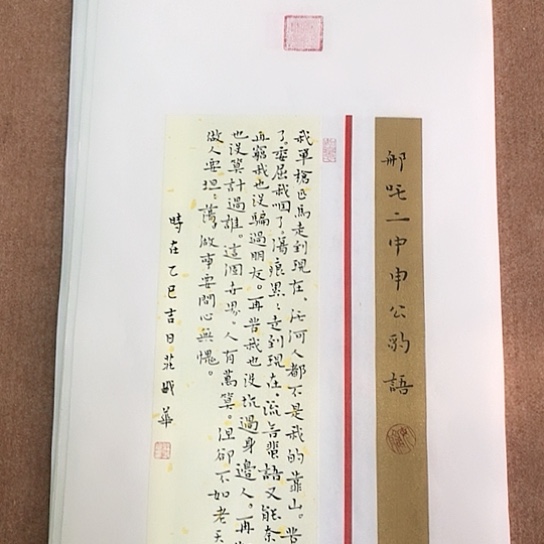 哪吒二申申公豹語
我單槍匹馬走到現在。任何人都不是我的靠山。苦
了。委屈我咽了。傷痕累：走到現在。流言蜚語又能奈
再窮我也没騙過朋友。再苦我也没坑過身邊人。再
也没算計過誰。這個世界。人有萬算。但卻不如老天
做人要坦：蕩。做事要問心無愧。
時在乙巳吉日莊
華